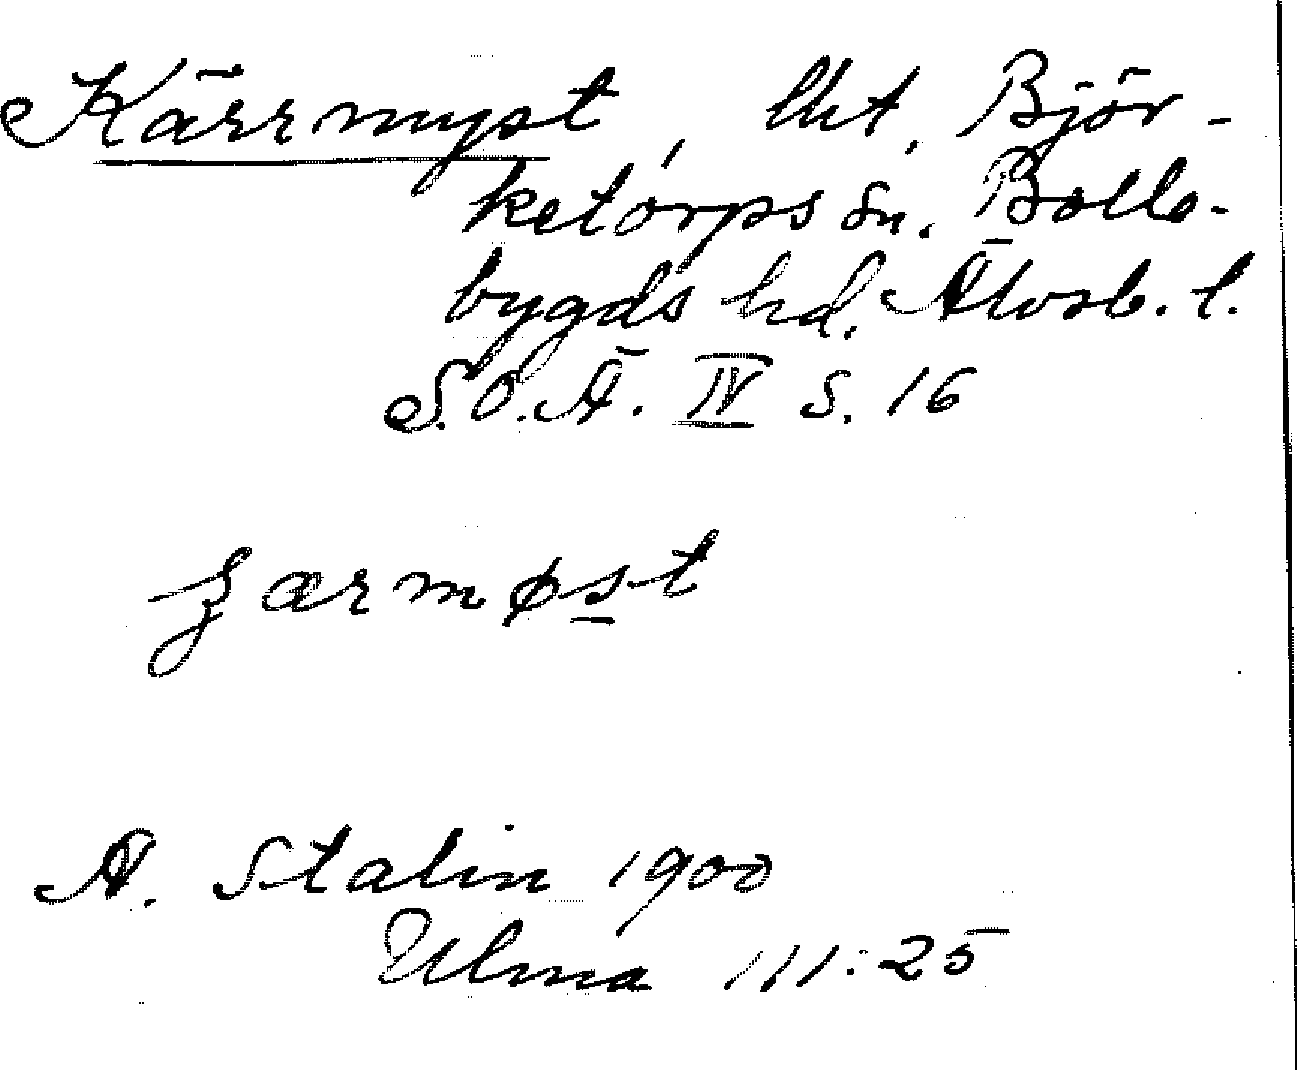 Kärrmyst, lht, Björ-
ketorps sn. Bolle-
bygds hd. Älvsb. l.
S.O.Ä. IV s. 16
ʒærmøst
A. Stalin 1900
Ulma 111:25